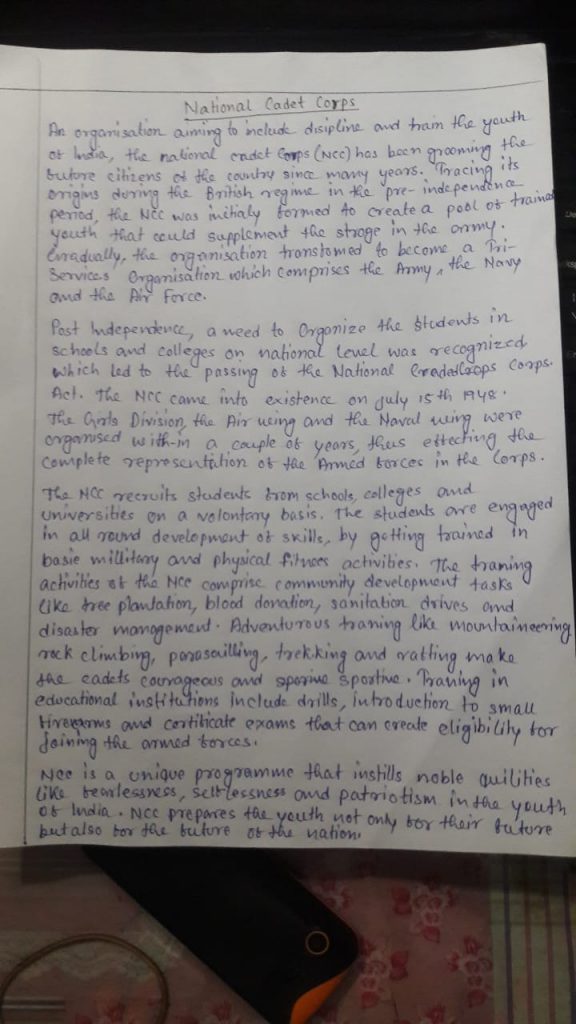 National Cadet Corps
An organisation aiming to include disipline and train the youth
of India, the national cadet Corps (NCC) has been grooming the
future citizens of the country since many years. Tracing its
origins during the British regime in the pre-independence
period, the NCC was initialy formed to create a pool of trained
youth that could supplement the stroge in the army.
Gradually, the organisation transtomed to become a Tri-
Services Organisation which comprises the Army, the Navy
and the Air Force.
Post Independence, a need to Organize the students in
schools and colleges on national level was recognized
which led to the passing of the National Corps.
Act. The NCC came into existence on July 15th 1948.
The Girls Division, the Air wing and the Naval wing were
organised with-in a couple of years, thus effecting the
complete representation of the Armed forces in the Corps.
The NCC recruits students from schools, colleges and
universities on a volontary basis. The students are engaged
in all round development of skills, by getting trained in
basic millitary and physical fitness activities. The traning
activities of the NCC comprise community development tasks
like tree plantation, blood donation, sanitation drives and
disaster management. Adventurous traning like mountaineering
rock climbing, parasailling, trekking and ratting make
the cadets courageous and sportive. Traning in
educational institutions include drills, introduction to small
firearms and certificate exams that can create eligibility for
Joining the armed forces.
NCC is a unique programme that instills noble quilities
like fearlessness, selflessness and patriotism in the youth
of India. NCC prepares the youth not only for their future
but also for the future of the nation.